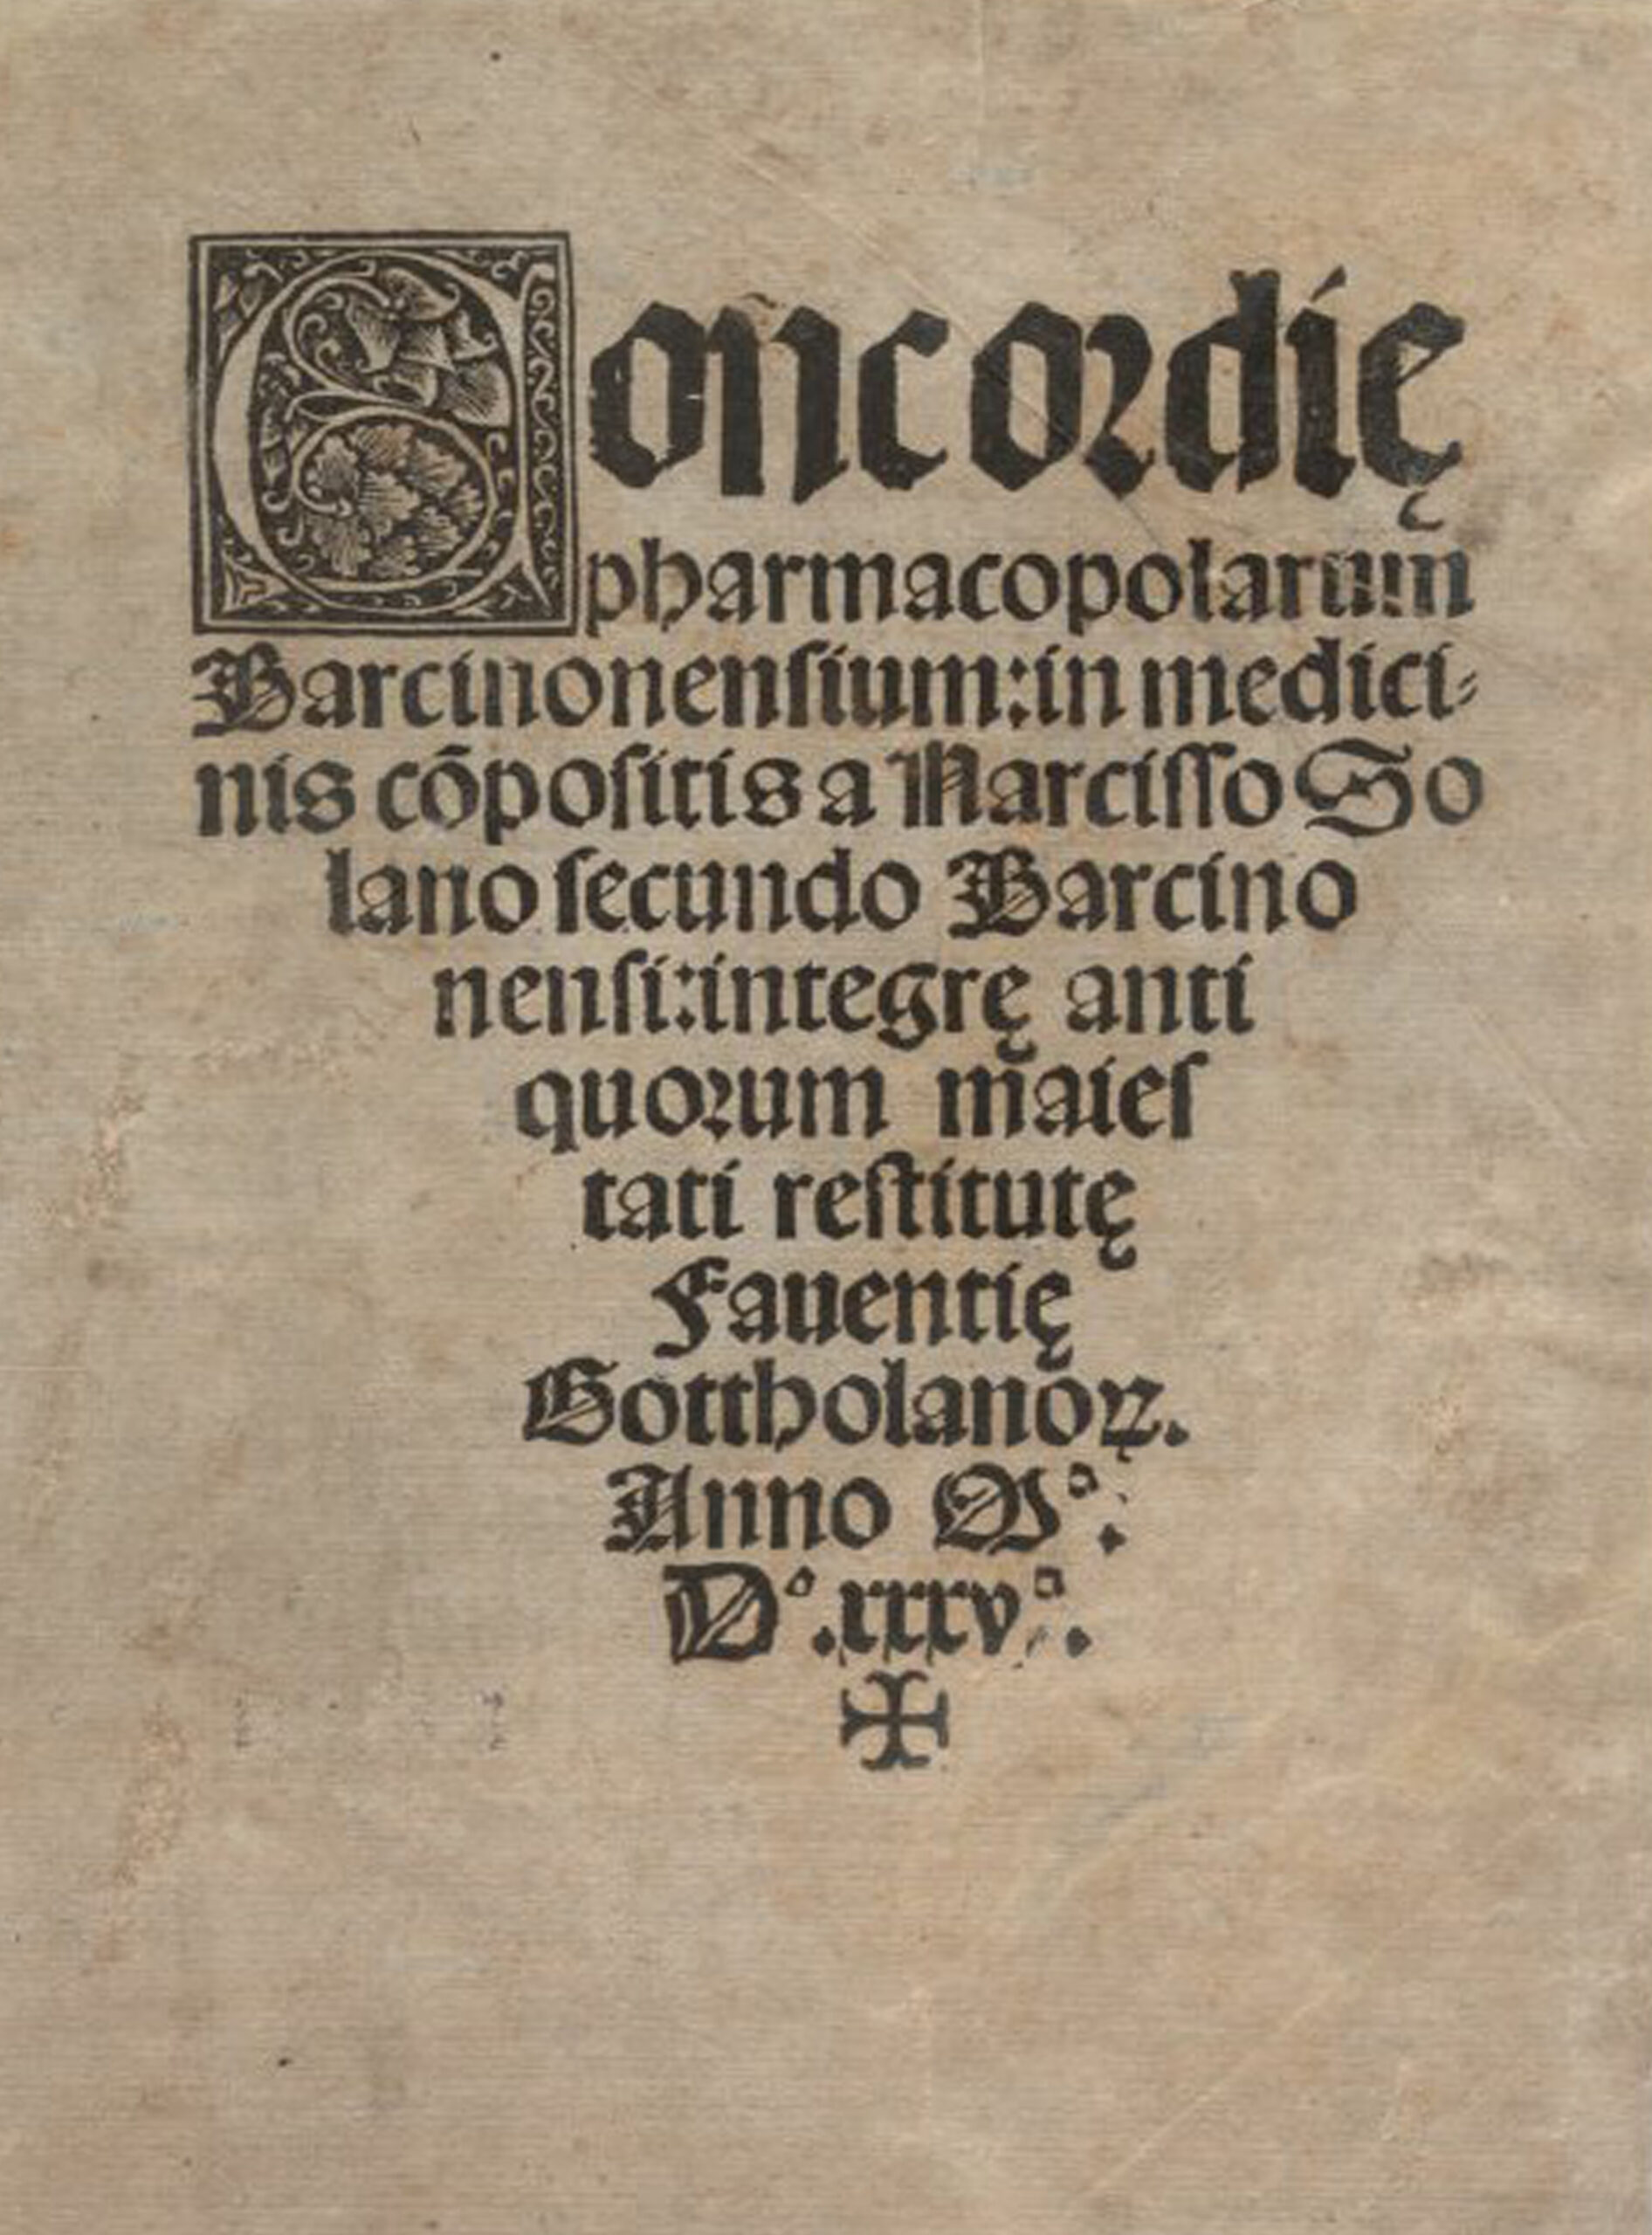 Concordię
pharmacopolarum
Barcinonensium: in medici⸗
nis cōpositis a Narcisso So
lano secundo Barcino
nensi: integrę anti
quorum maies
tati restitutę
Fauentię
Gottholanoꝝ.
Anno Mº.
Dº.xxxvº.